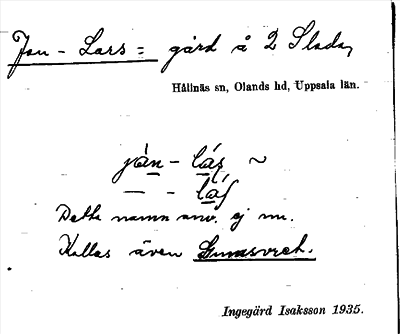 Jan - Lars = gård å 2 Slada,
Hållnäs sn, Olands hd, Uppsala län.
jàn - lás ~
— - láſ
Detta namn anv. ej nu.
Kallas även
Ingegärd Isaksson 1935.